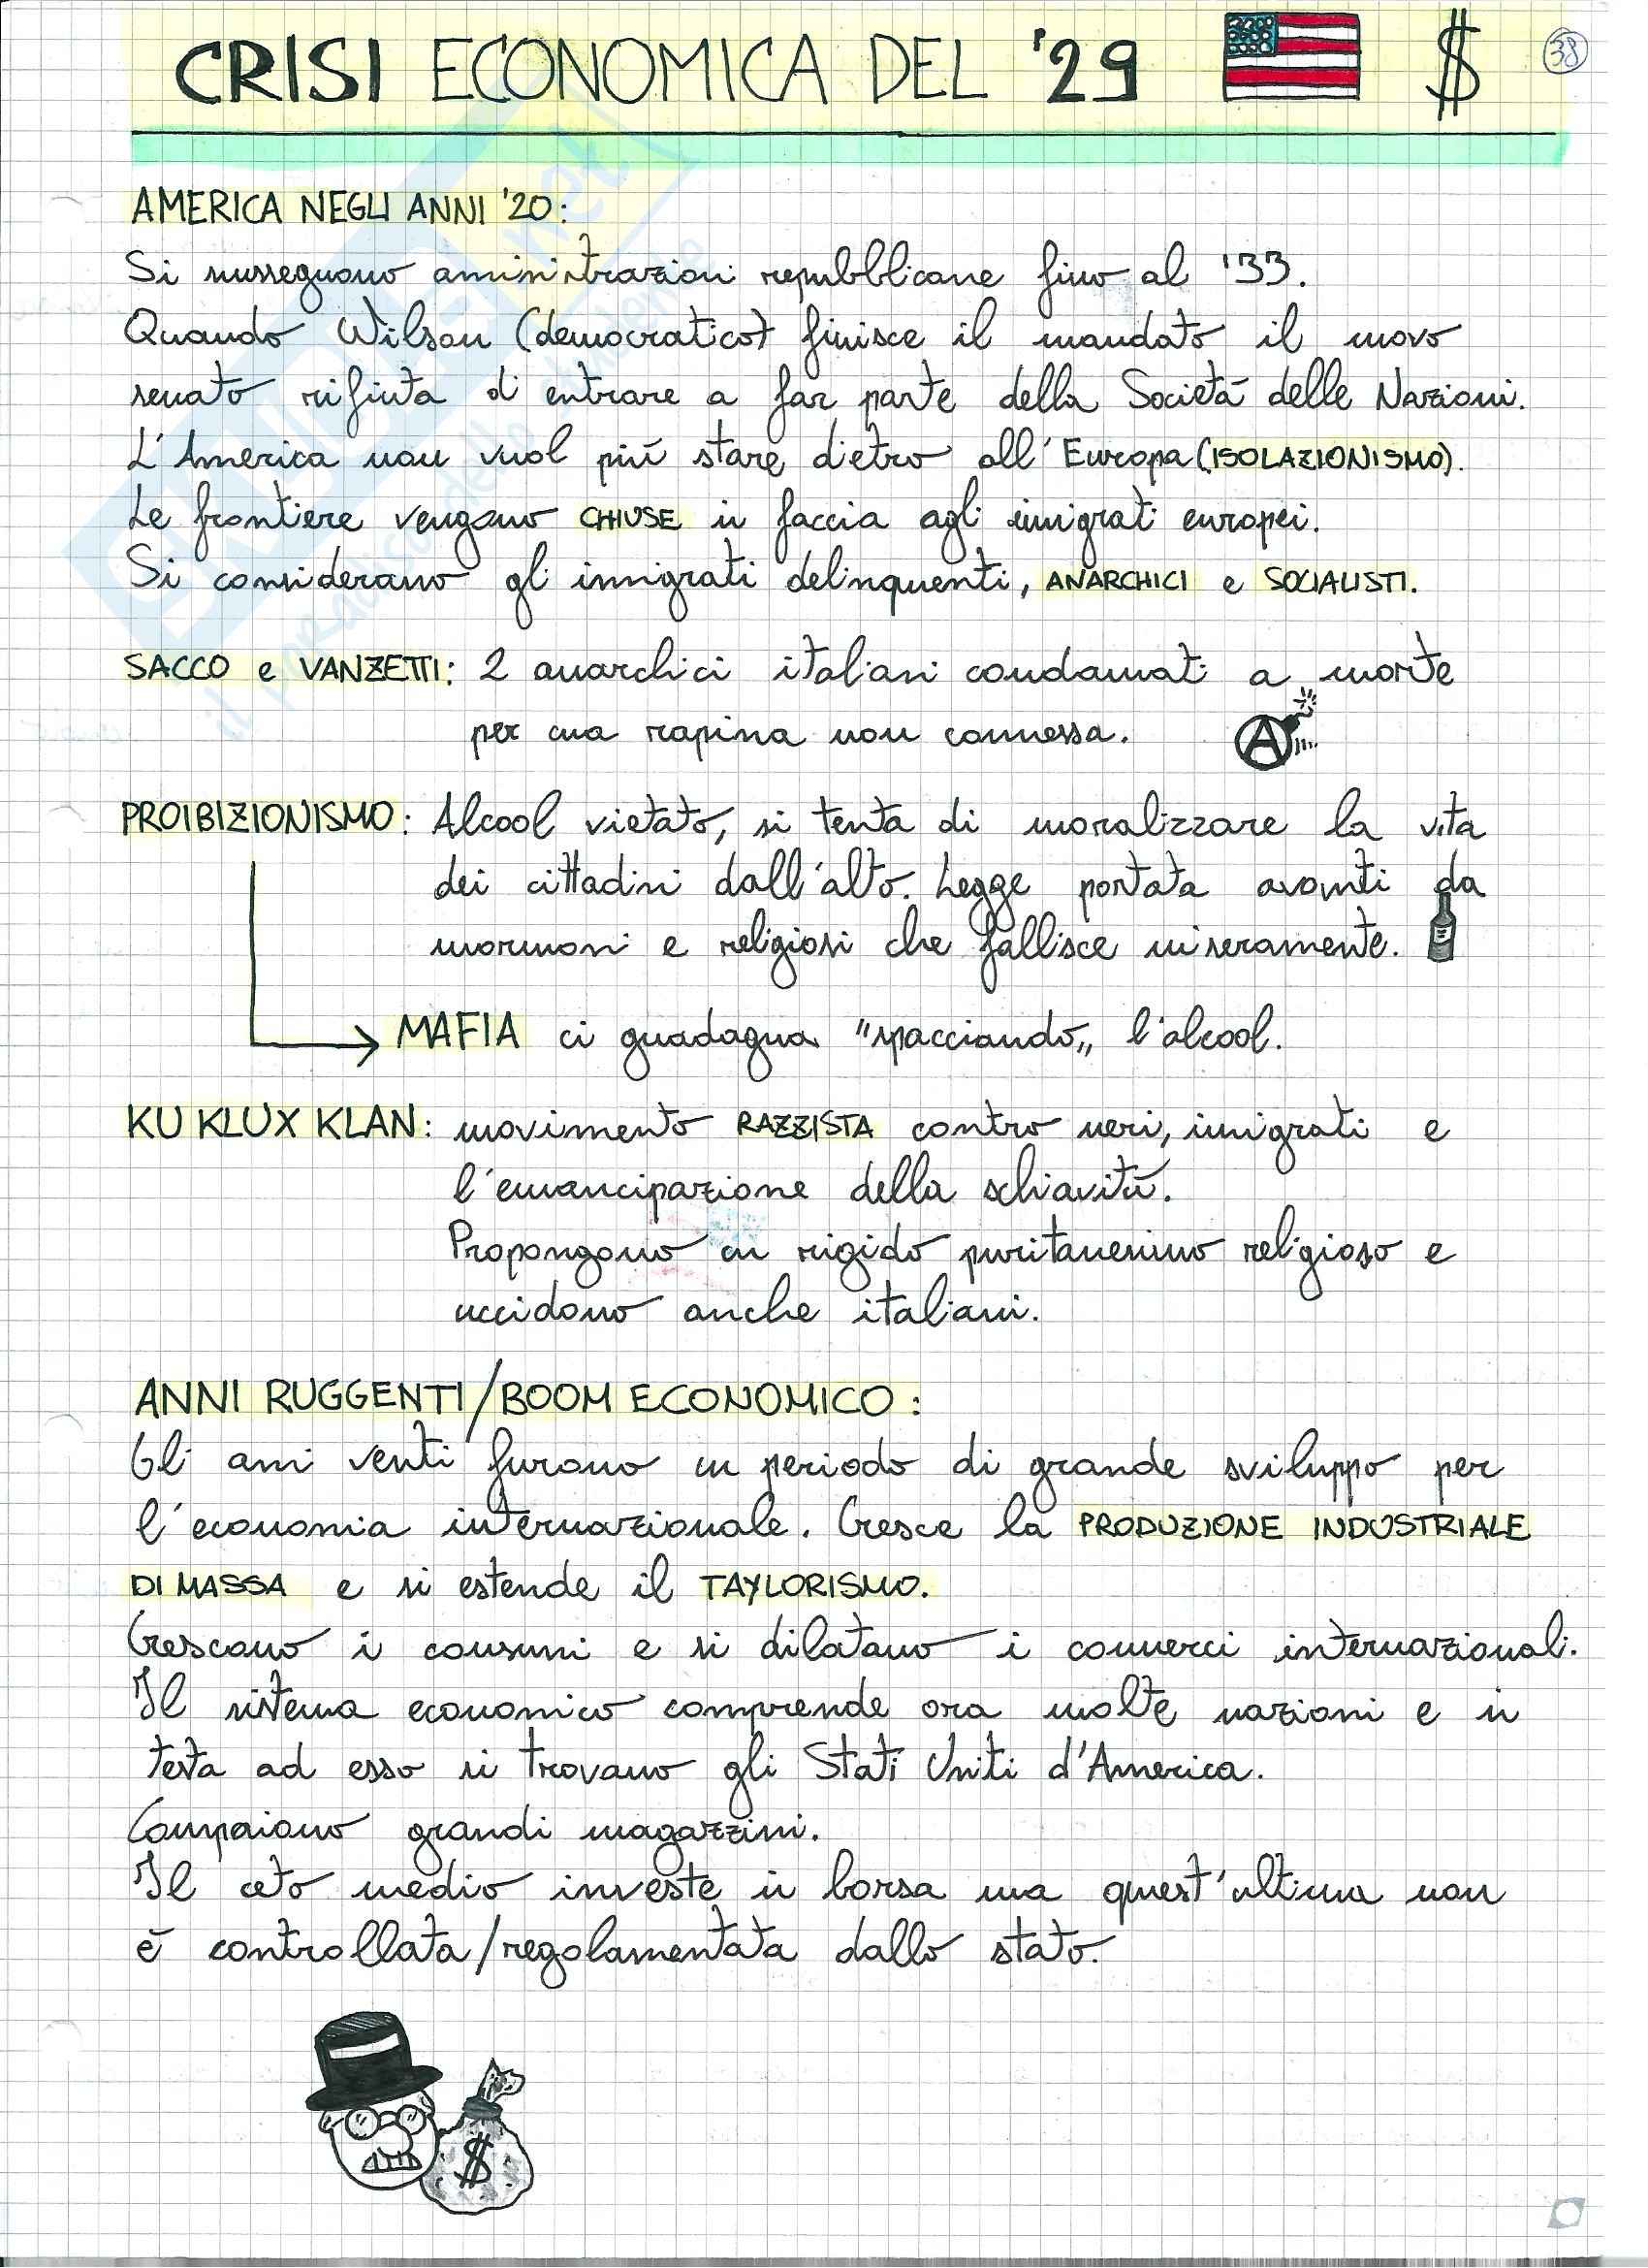 CRISI ECONOMICA DEL '29 $ 38
AMERICA NEGLI ANNI '20:
Si susseguono aministrazioni repubblicane fino al '33.
Quando Wilson (democratico) finisce il mandato il nuovo
senato rifiuta di entrare a far parte della Società delle Nazioni.
L'America non vuol più stare dietro all'Europa (ISOLAZIONISMO).
Le frontiere vengono CHIUSE in faccia agli immigrati europei.
Si considerano gli immigrati delinquenti, ANARCHICI e SOCIALISTI.
SACCO e VANZETTI: 2 anarchici italiani condannati a morte
per una rapina non commessa.
A
PROIBIZIONISMO: Alcool vietato, si tenta di moralizzare la vita
dei cittadini dall'alto. Legge portata avanti da
mormoni e religiosi che fallisce miseramente.
MAFIA ci guadagna "spacciando" l'alcool.
KU KLUX KLAN: movimento RAZZISTA contro neri, immigrati e
l'emancipazione della schiavitù.
Propongono un rigido puritanesimo religioso e
uccidono anche italiani.
ANNI RUGGENTI/BOOM ECONOMICO:
Gli anni venti furono un periodo di grande sviluppo per
l'economia internazionale. Cresce la PRODUZIONE INDUSTRIALE
DI MASSA e si estende il TAYLORISMO.
Crescono i consumi e si dilatano i commerci internazionali.
Il sistema economico comprende ora molte nazioni e in
testa ad esso si trovano gli Stati Uniti d'America.
Compaiono grandi magazzini.
Il ceto medio investe in borsa ma quest'ultima non
è controllata/regolamentata dallo stato.
$